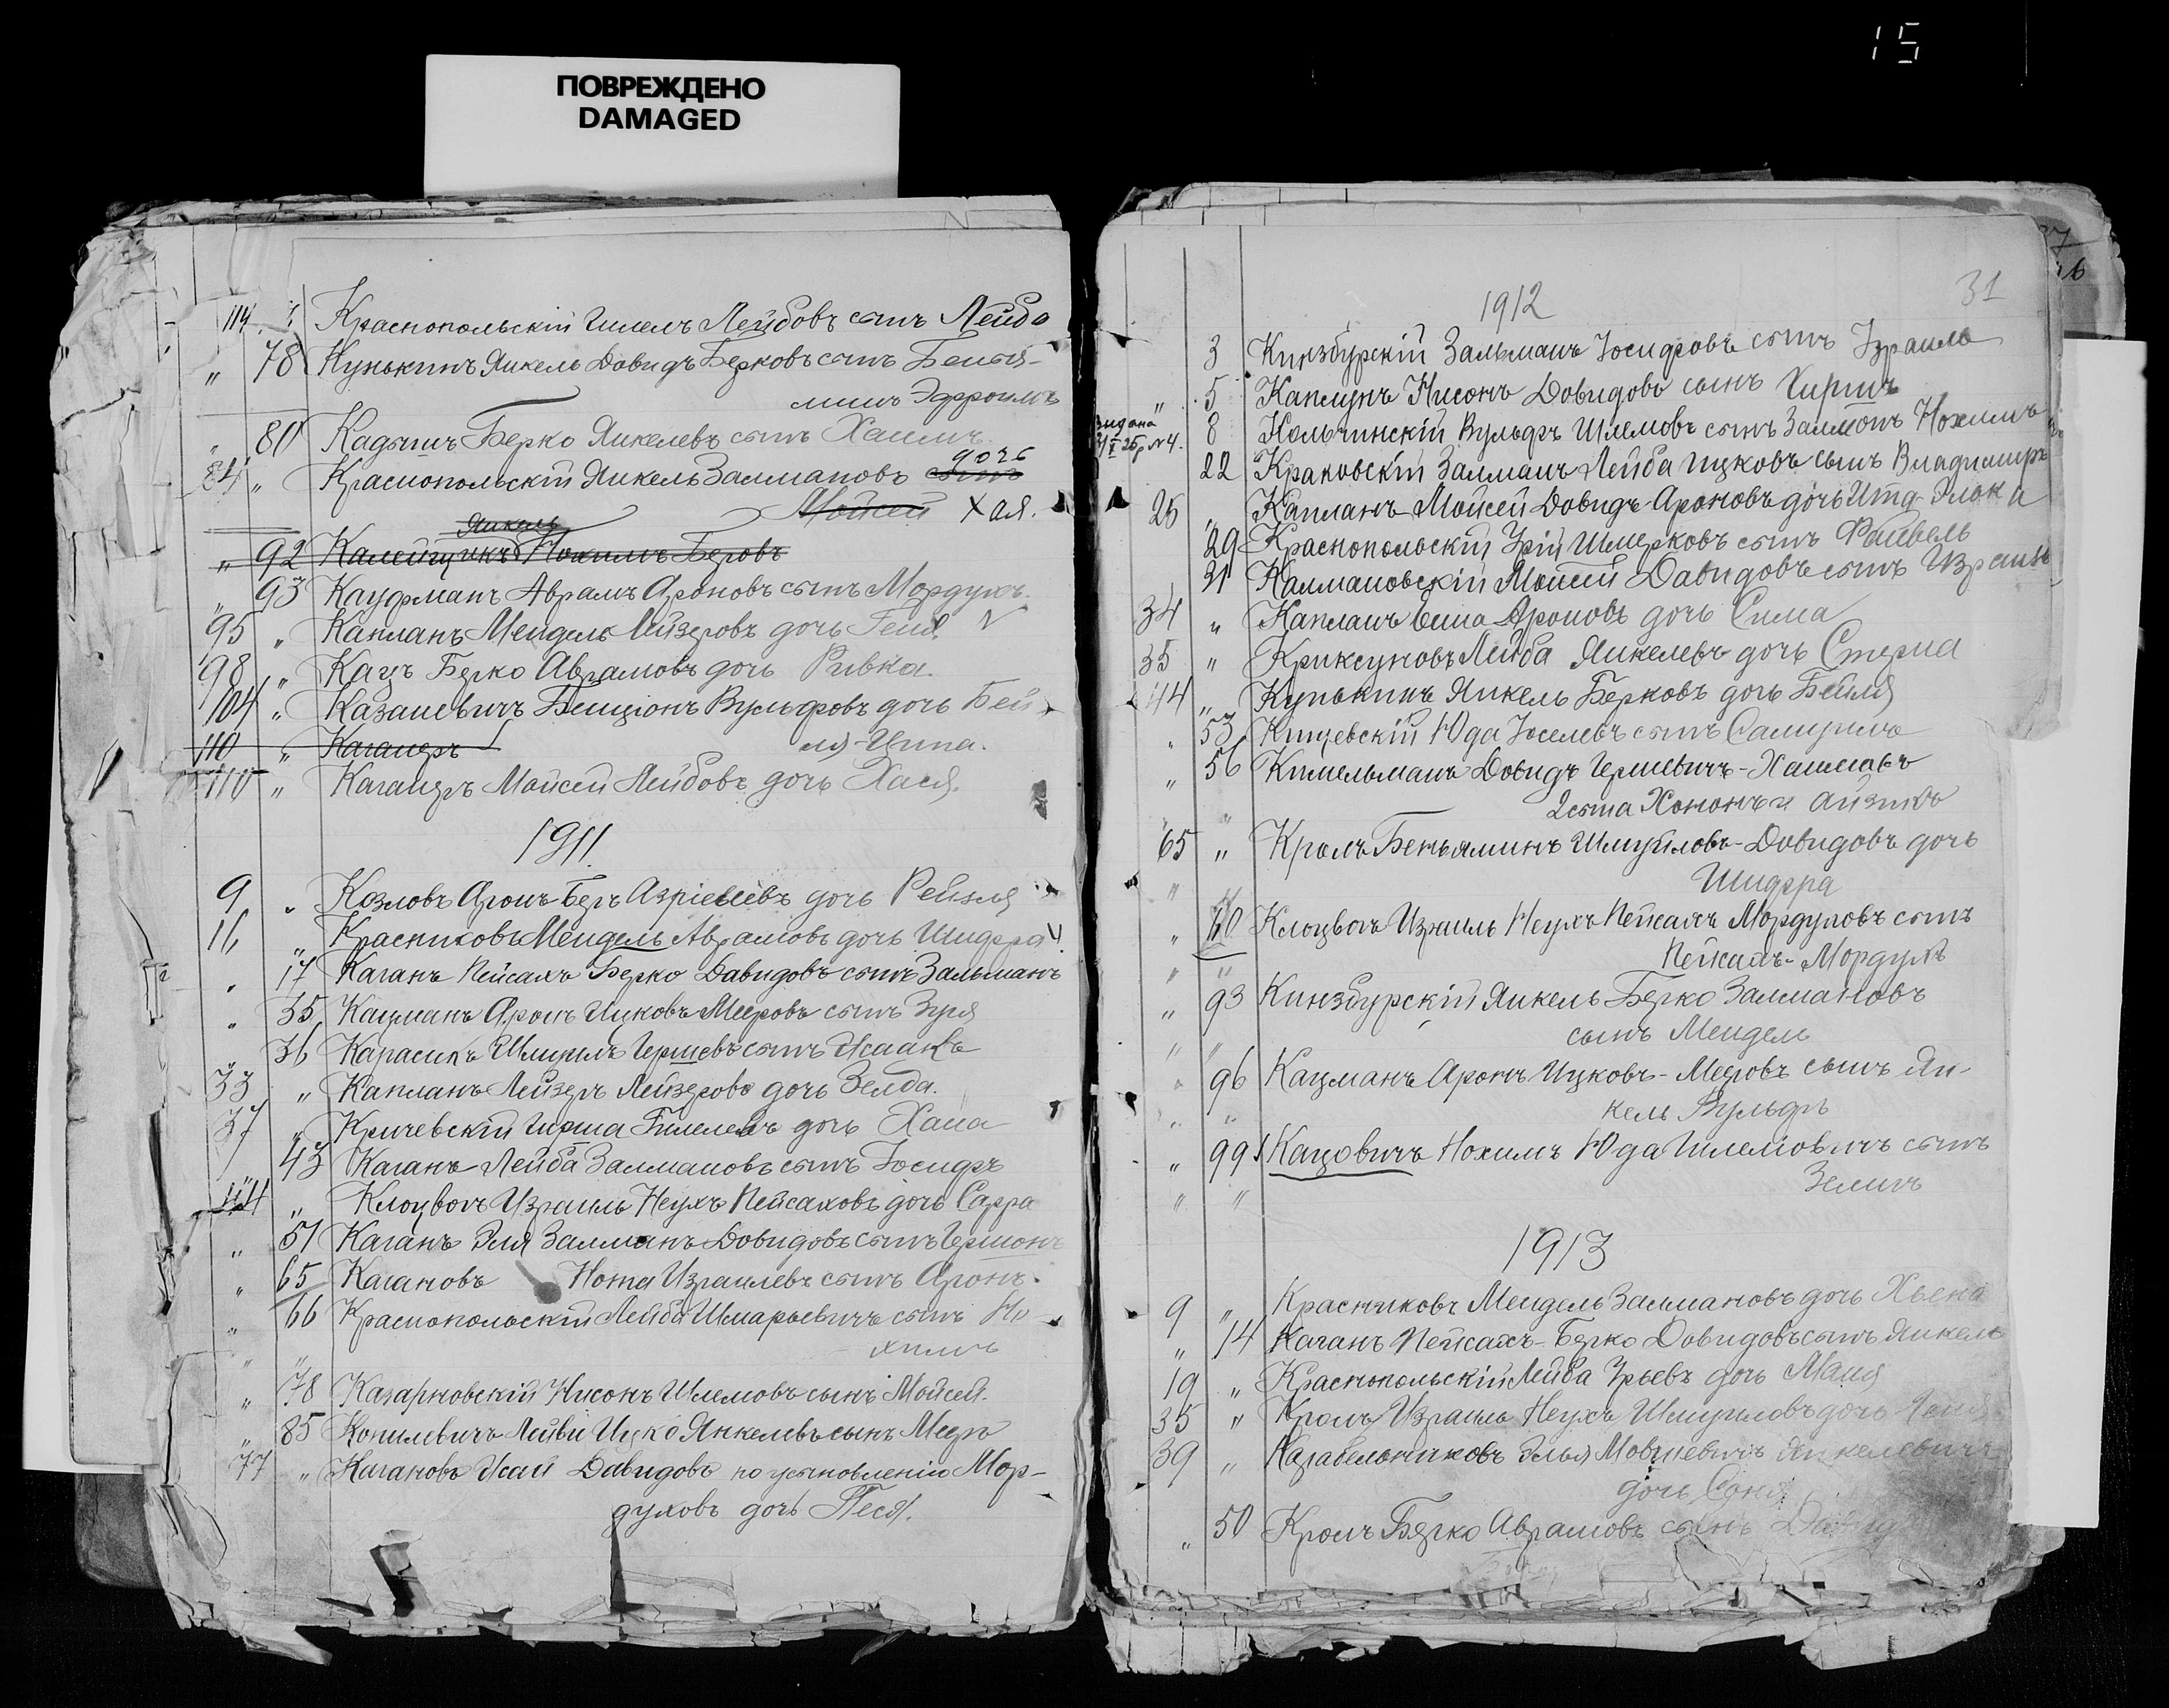 15
ПОВРЕЖДЕНО
DAMAGED
114 Краснопольскій Гилелъ Лейбовъ сынъ Лейба
" 78 Кунькинъ Янкель Довидъ Берковъ сынъ Бенья-
минъ Эфроимъ
" 80 Кадышъ Берко Янкелевъ сынъ Хаимъ
84 " Краснопольскій Янкель Залмановъ сынъ дочь
Мойсей Хая.
Янкель
" 92 Калейщикъ Нохимъ Беровъ
" 93 Кауфманъ Аврамъ Ароновъ сынъ Мордухъ.
95 " Капланъ Мендель Лейзеровъ дочь Геня.
98 " Кацъ Берко Аврамовъ дочь Ривка.
104 " Казаневичъ Бенціонъ Вульфовъ дочь Бей-
ля-Ципа.
110 " Каганеръ
110 " Каганеръ Мойсей Лейбовъ дочь Хася.
1911
9 " Козловъ Аронъ-Беръ Азріелевъ дочь Рейзля
16 " Красниковъ Мендель Аврамовъ дочь Шифра
" 17 Каганъ Пейсахъ Берко Давидовъ сынъ Зальманъ
" 35 Кацманъ Аронъ Ицковъ Мееровъ сынъ Зуся
" 36 Карасикъ Шмуилъ Гершевъ сынъ Исаакъ
33 " Капланъ Лейзеръ Лейзеровъ дочь Зелда.
37 " Кричевскій Гирша Гилелевъ дочь Хана
" 43 Каганъ Лейба Залмановъ сынъ Іосифъ
44 " Клоцвогъ Израиль Неухъ Пейсаховъ дочь Сарра
" 51 Каганъ Эля Залманъ Довидовъ сынъ Гершонъ
" 65 Кагановъ Нота Израилевъ сынъ Аронъ.
" 66 Краснопольскій Лейба Шмарьевичъ сынъ Но-
" " химъ
" 78 Казарновскій Нисонъ Шлемовъ сынъ Мойсей.
" 85 Копилевичъ Лейви Ицко Янкелевъ сынъ Мееръ
77 " Кагановъ Исай Давидовъ по усыновленію Мор-
духовъ дочь Песя.
31
1912
3 Кинзбурскій Зальманъ Іосифовъ сынъ Израиль
" 5 Каплунъ Нисонъ Довидовъ сынъ Гиршъ
8 Кольчинскій Вульфъ Шлемовъ сынъ Залмонъ Нохимъ
22 Краковскій Залманъ Лейба Ицковъ сынъ Владимиръ
25 " Капланъ Мойсей Довидъ Ароновъ дочь Ита-Элька
29 Краснопольскій Урій Шмерковъ сынъ Файвель
31 Калмановскій Мойсей Давидовъ сынъ Израиль
34 " Капланъ Ароновъ дочь Сима
35 " Криксуновъ Лейба Янкелевъ дочь Стерна
44 " Кунькинъ Янкель Берковъ дочь Бейля
" 53 Кицевскій Юда Іоселевъ сынъ Самуилъ
" 56 Кимельманъ Довидъ Гершевичъ-Хаимовъ
" " 2 сына Хононъ и Айзикъ
65 " Кролъ Беньяминъ Шмуйловъ-Довидовъ дочь
" Шифра
" 60 Клоцвогъ Израиль Неухъ Пейсахъ Мордуховъ сынъ
" " Пейсахъ-Мордухъ
" 93 Кинзбурскій Янкель Берко Залмановъ
" " сынъ Мендель
" 96 Кацманъ Аронъ Ицковъ-Мееровъ сынъ Ян-
" " кель Вульфъ
" 99 Кацовичъ Нохимъ Юда Шлемовичъ сынъ
" " Зеликъ
1913
9 " Красниковъ Мендель Залмановъ дочь Хьена
" 14 Каганъ Пейсахъ-Берко Довидовъ сынъ Янкель
19 " Краснопольскій Лейба Урьевъ дочь Маня
35 " Кролъ Израиль Неухъ Шмуиловъ дочь
39 " Карабельниковъ Элья Мовшевичъ Янкелевичъ
дочь Соня
" 50 Кролъ Берко Аврамовъ сынъ Давид